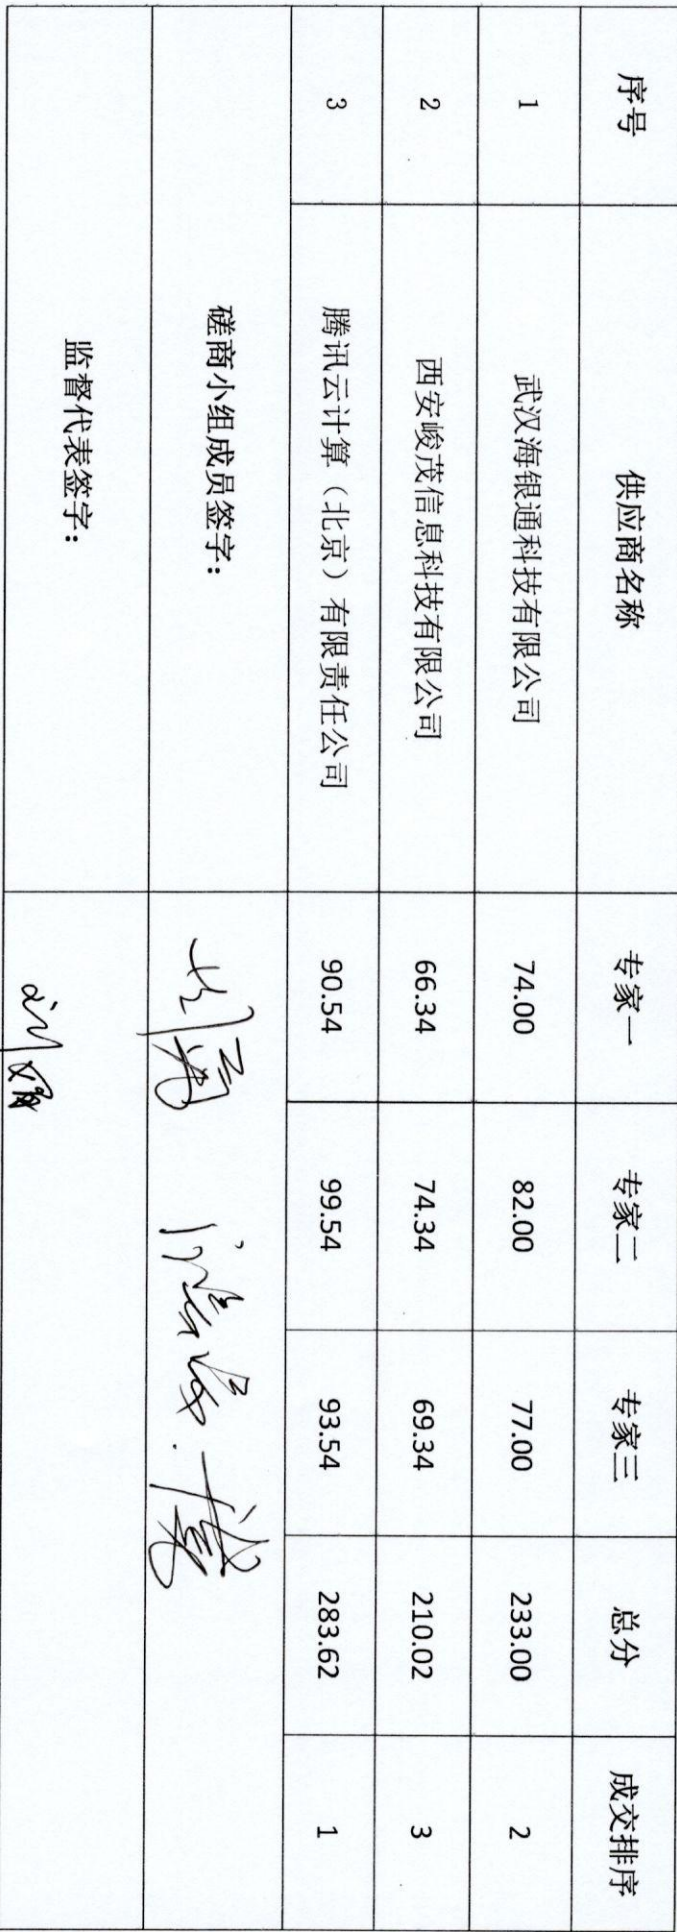 序号 供应商名称 专家一 专家二 专家三 总分 成交排序
1 武汉海银通科技有限公司 74.00 82.00 77.00 233.00 2
2 西安峻茂信息科技有限公司 66.34 74.34 69.34 210.02 3
3 腾讯云计算（北京）有限责任公司 90.54 99.54 93.54 283.62 1
磋商小组成员签字：
监督代表签字：